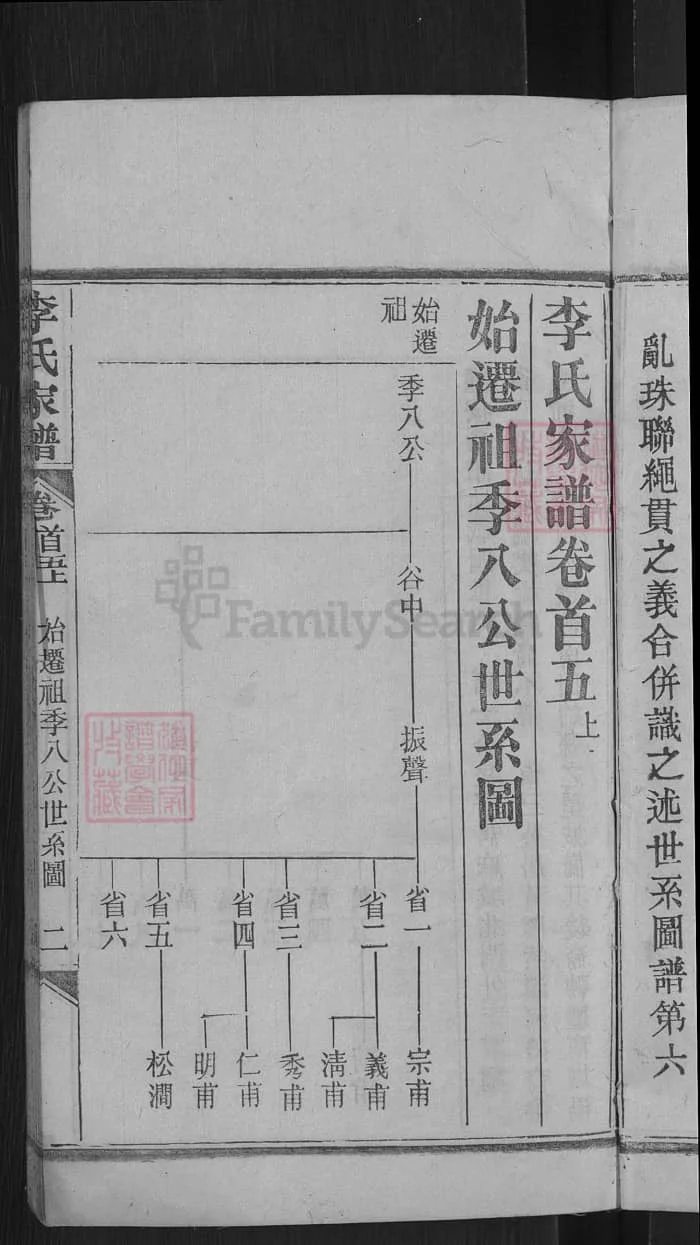 亂珠聯繩貫之義合併識之述世系圖譜第六
李氏家譜卷首五上
始遷祖季八公世系圖
始遷祖
季八公
谷中
振聲
省一
省二
省三
省四
省五
省六
宗甫
義甫
淸甫
秀甫
仁甫
明甫
松澗
李氏家譜
卷首五上
始遷祖季八公世系圖
二
FamilySearch